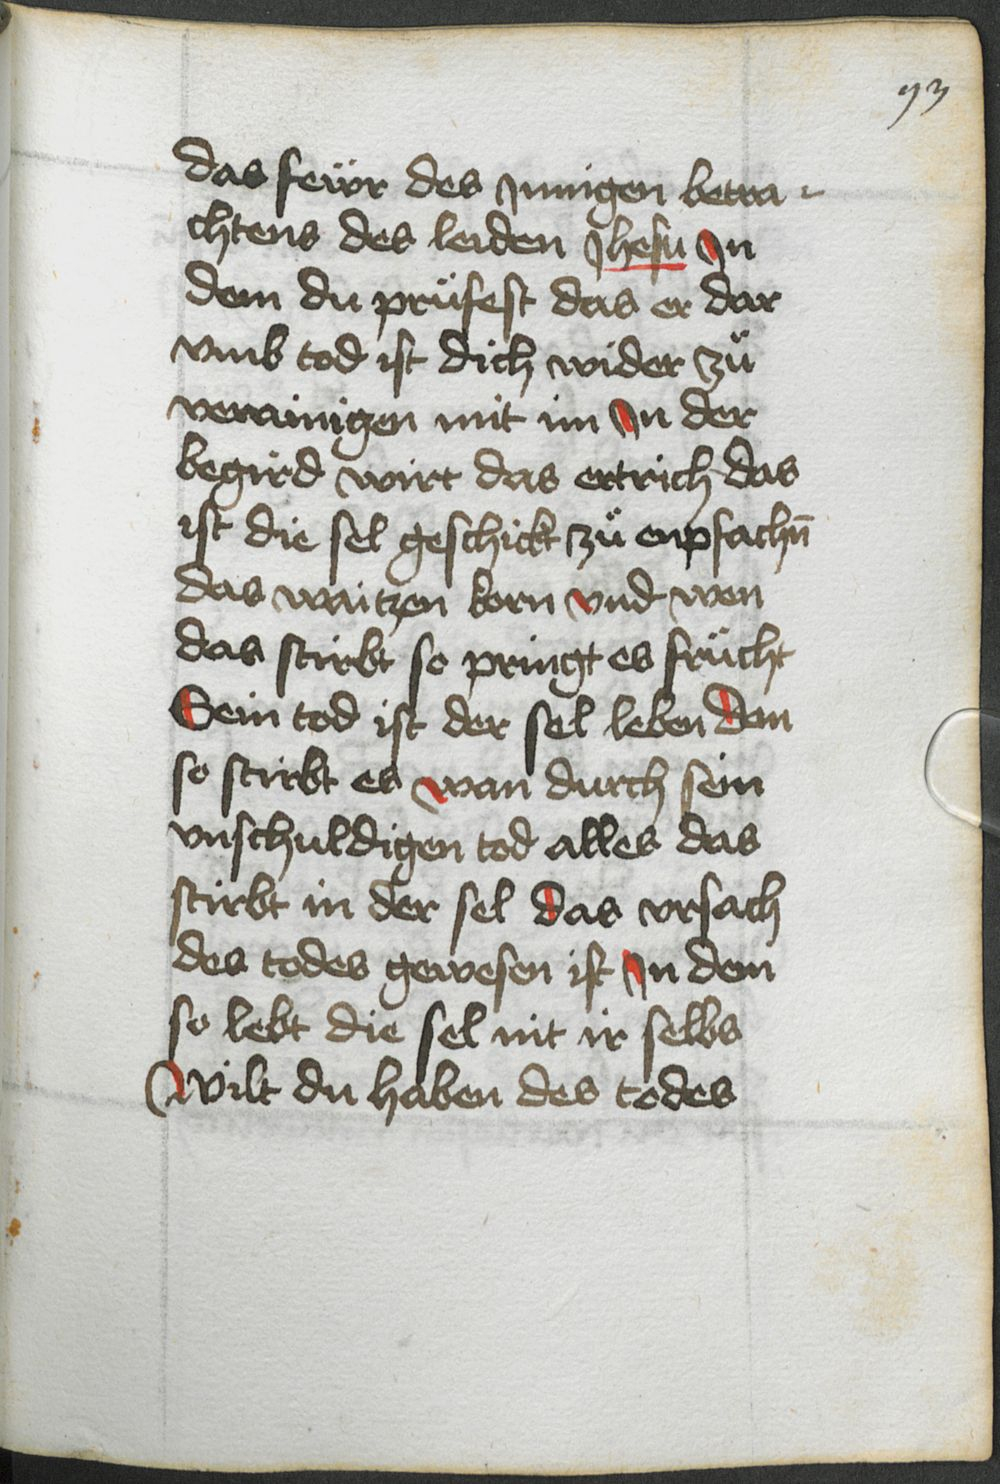 93
das feẅr des Jnnigen betra-
chtens des leiden Jhesu Jn
dem du prüfest das er dar
vmb tod ist dich wider zů
verainigen mit im Jn der
begird wirt das ertrich das
ist die sel geschickt zů enpfachn̄
das waitzen korn vnd wen
das stirbt so pringt es frücht
Sein tod ist der sel leben Den
so stirbt es wan durch sein
vnschuldigen tod alles das
stirbt in der sel das vrsach
des todes gewesen ist Jn dem
so lebt die sel nit ir selbs
Wilt du haben des todes